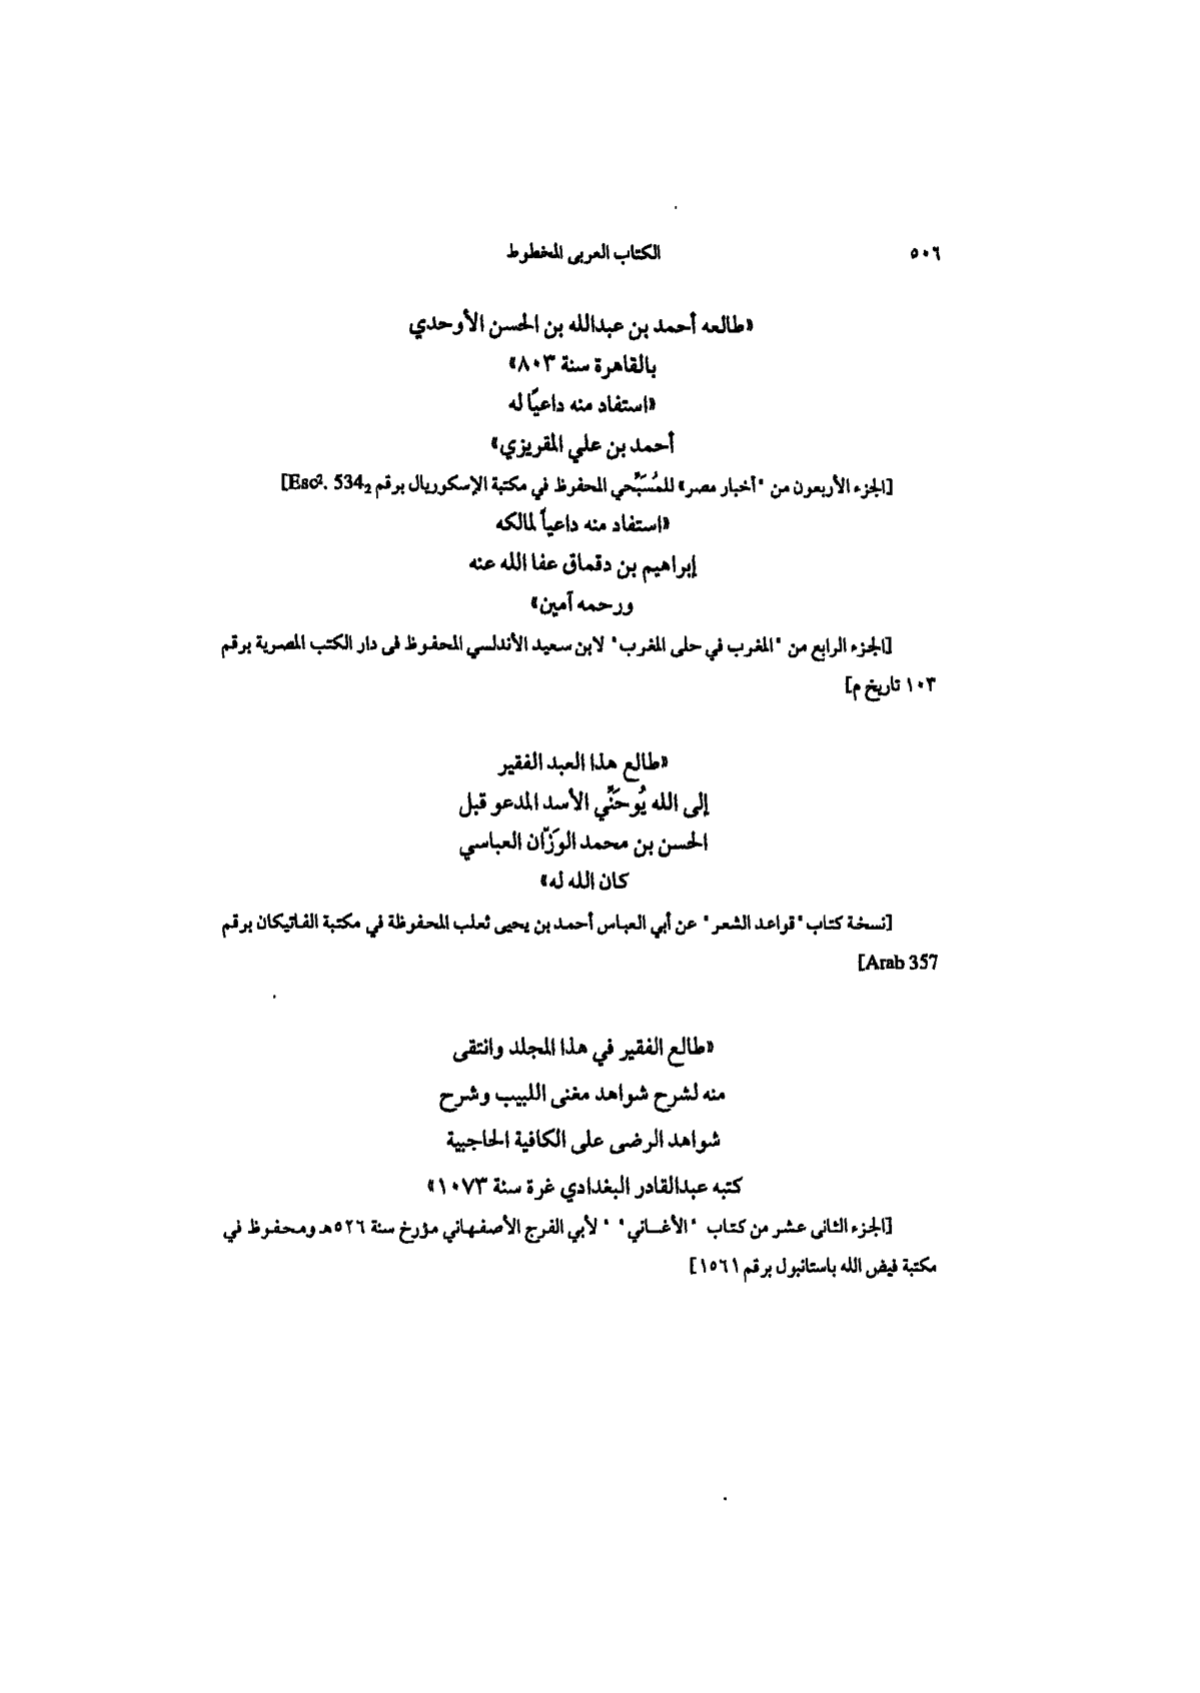 ٥٠٦ الكتاب العربى المخطوط
«طالعه أحمد بن عبدالله بن الحسن الأوحدي
بالقاهرة سنة ٨٠٣»
«استفاد منه داعيًا له
أحمد بن علي المقريزي»
[الجزء الأربعون من "أخبار مصر» للمُسَبِّحي المحفوظ في مكتبة الإسكوريال برقم Esc². 534₂]
«استفاد منه داعياً لمالكه
إبراهيم بن دقماق عفا الله عنه
ورحمه آمين»
[الجزء الرابع من "المغرب في حلى المغرب" لابن سعيد الأندلسي المحفوظ فى دار الكتب المصرية برقم
١٠٣ تاريخ م]
«طالع هذا العبد الفقير
إلى الله يُوحَنِّي الأسد المدعو قبل
الحسن بن محمد الوَزّان العباسي
كان الله له»
[نسخة كتاب "قواعد الشعر" عن أبي العباس أحمد بن يحيى ثعلب المحفوظة في مكتبة الفاتيكان برقم
Arab 357]
«طالع الفقير في هذا المجلد وانتقى
منه لشرح شواهد مغنى اللبيب وشرح
شواهد الرضى على الكافية الحاجبية
كتبه عبدالقادر البغدادي غرة سنة ١٠٧٣»
[الجزء الثانى عشر من كتاب "الأغـــاني" " لأبي الفرج الأصفهاني مؤرخ سنة ٥٢٦هـ ومحفوظ في
مكتبة فيض الله باستانبول برقم ١٥٦١]